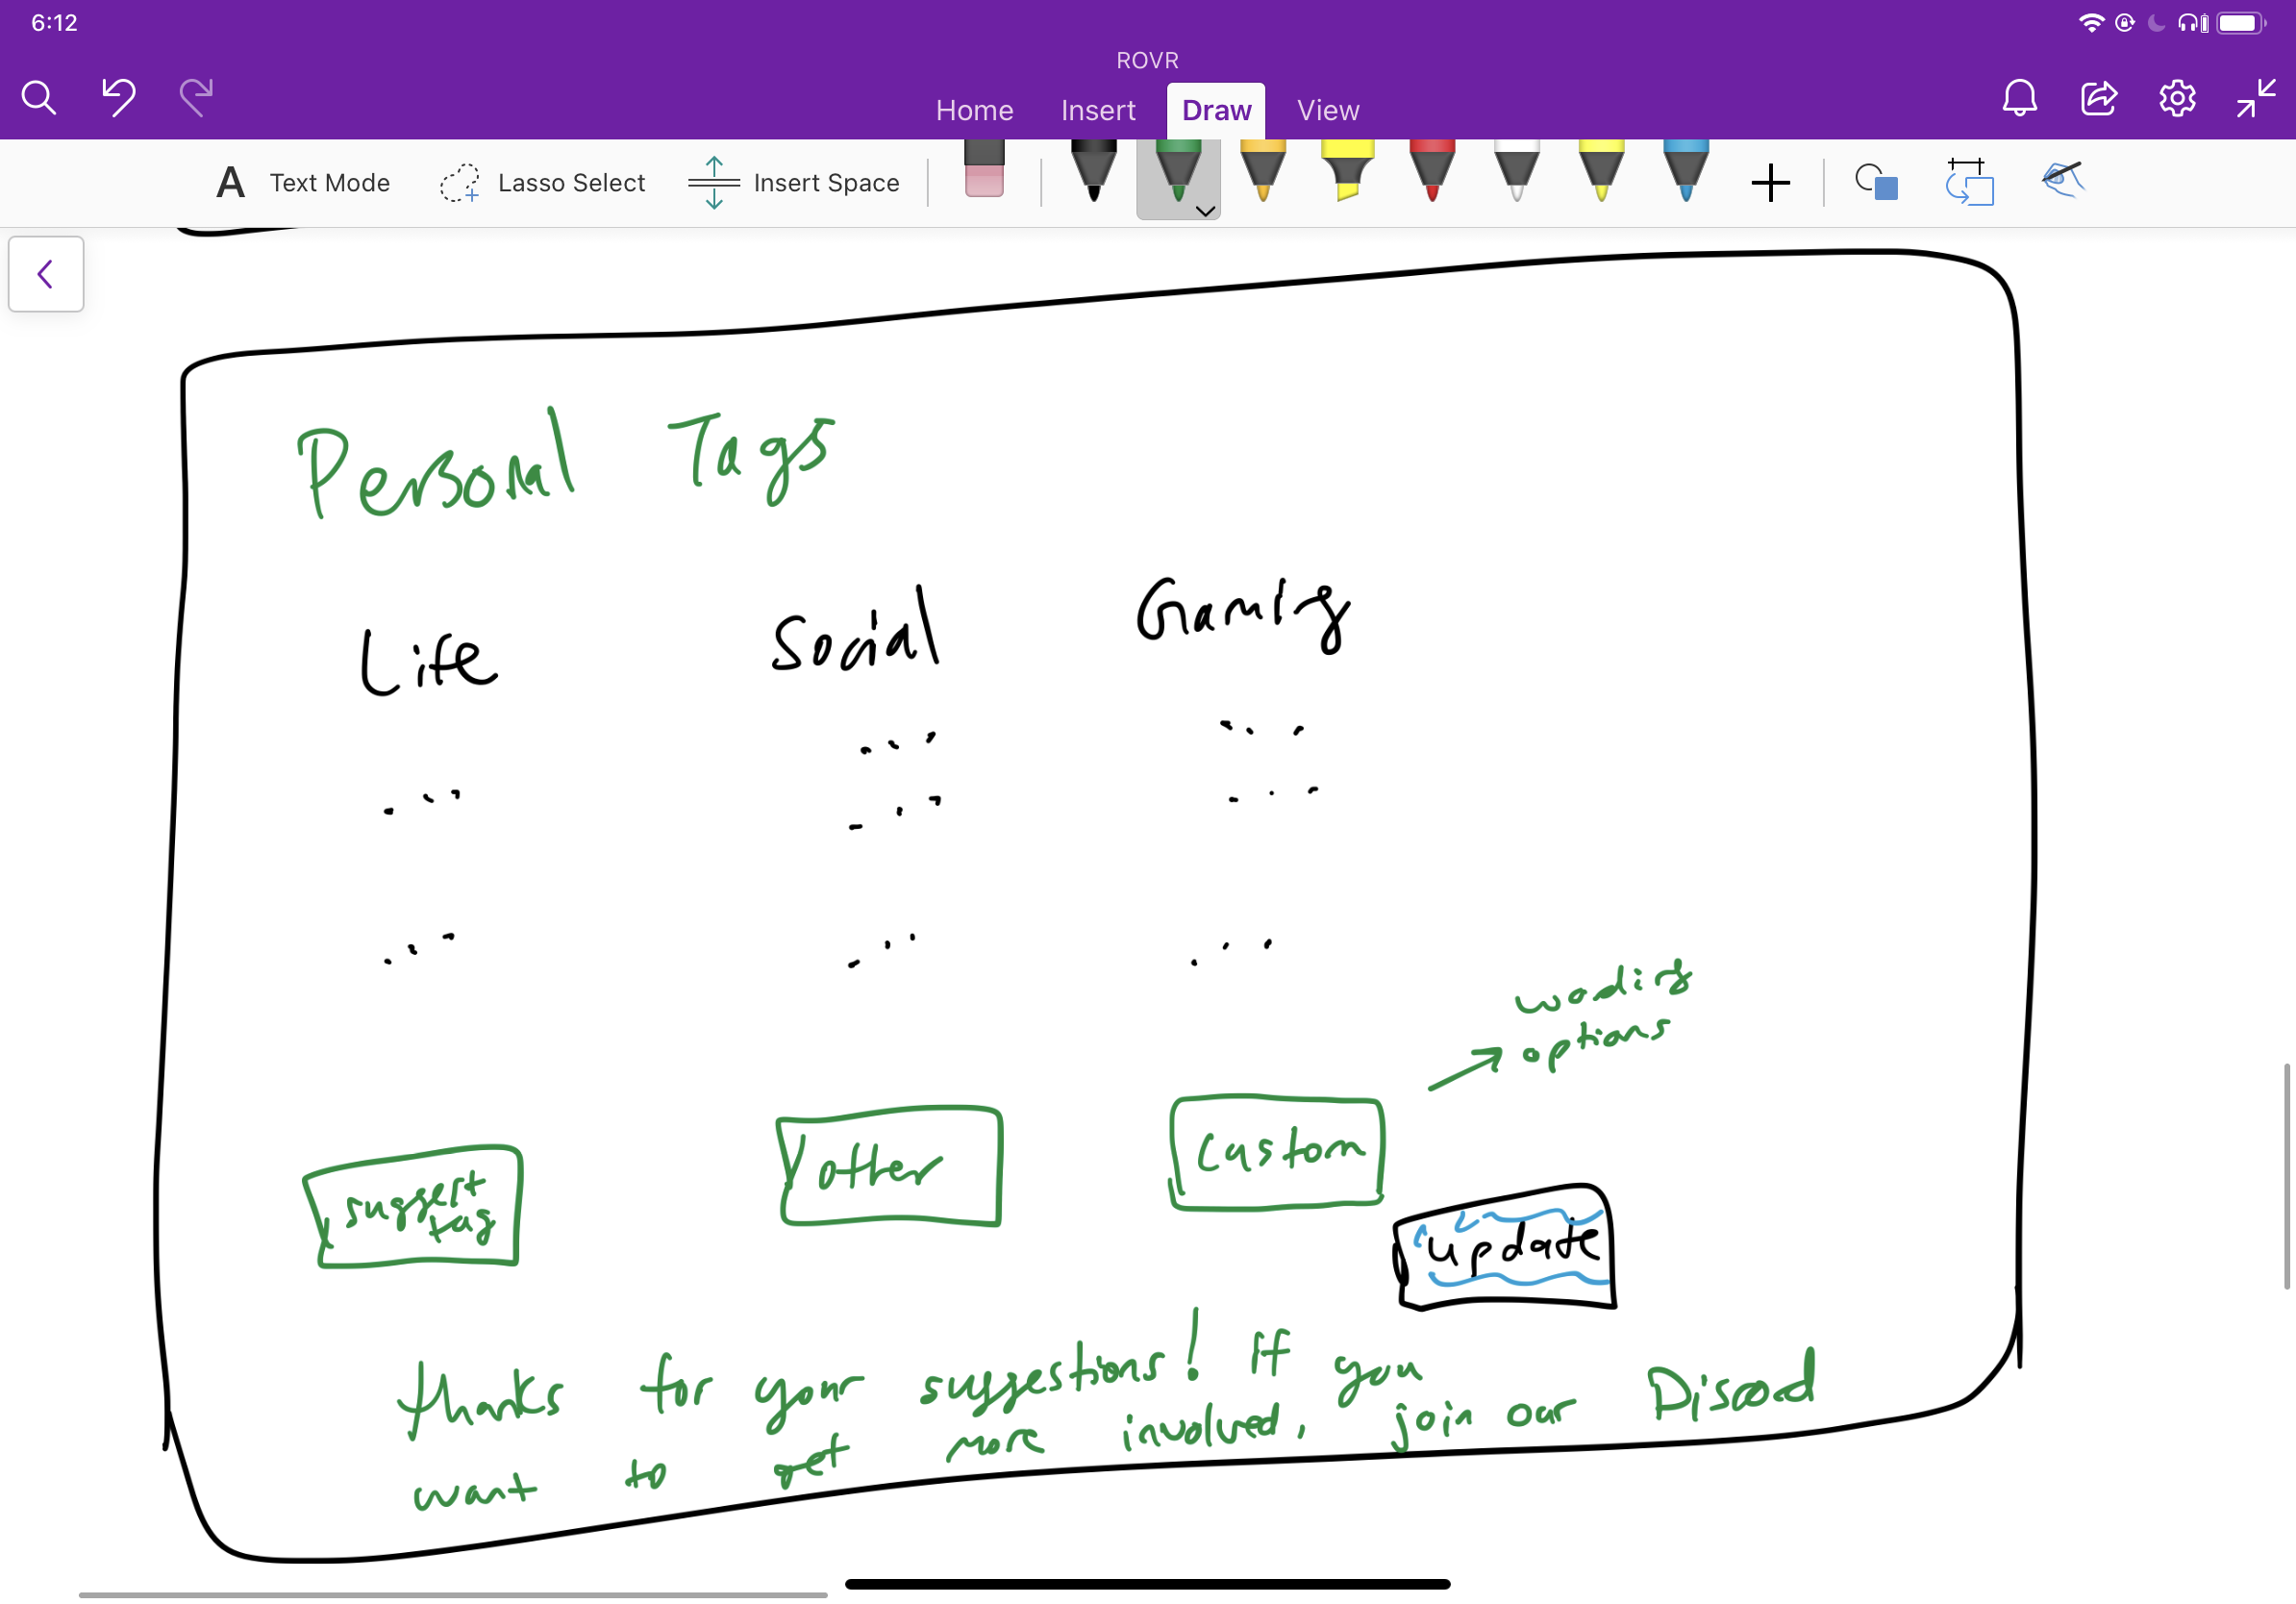 6:12
ROVR
Home Insert Draw View
A Text Mode Lasso Select Insert Space
Personal Tags
Life Social Gaming
... ...
... ... ...
... ... ...
wording
options
suggest
tag
other
custom
update
thanks for your suggestions! If you
want to get more involved, join our Discord